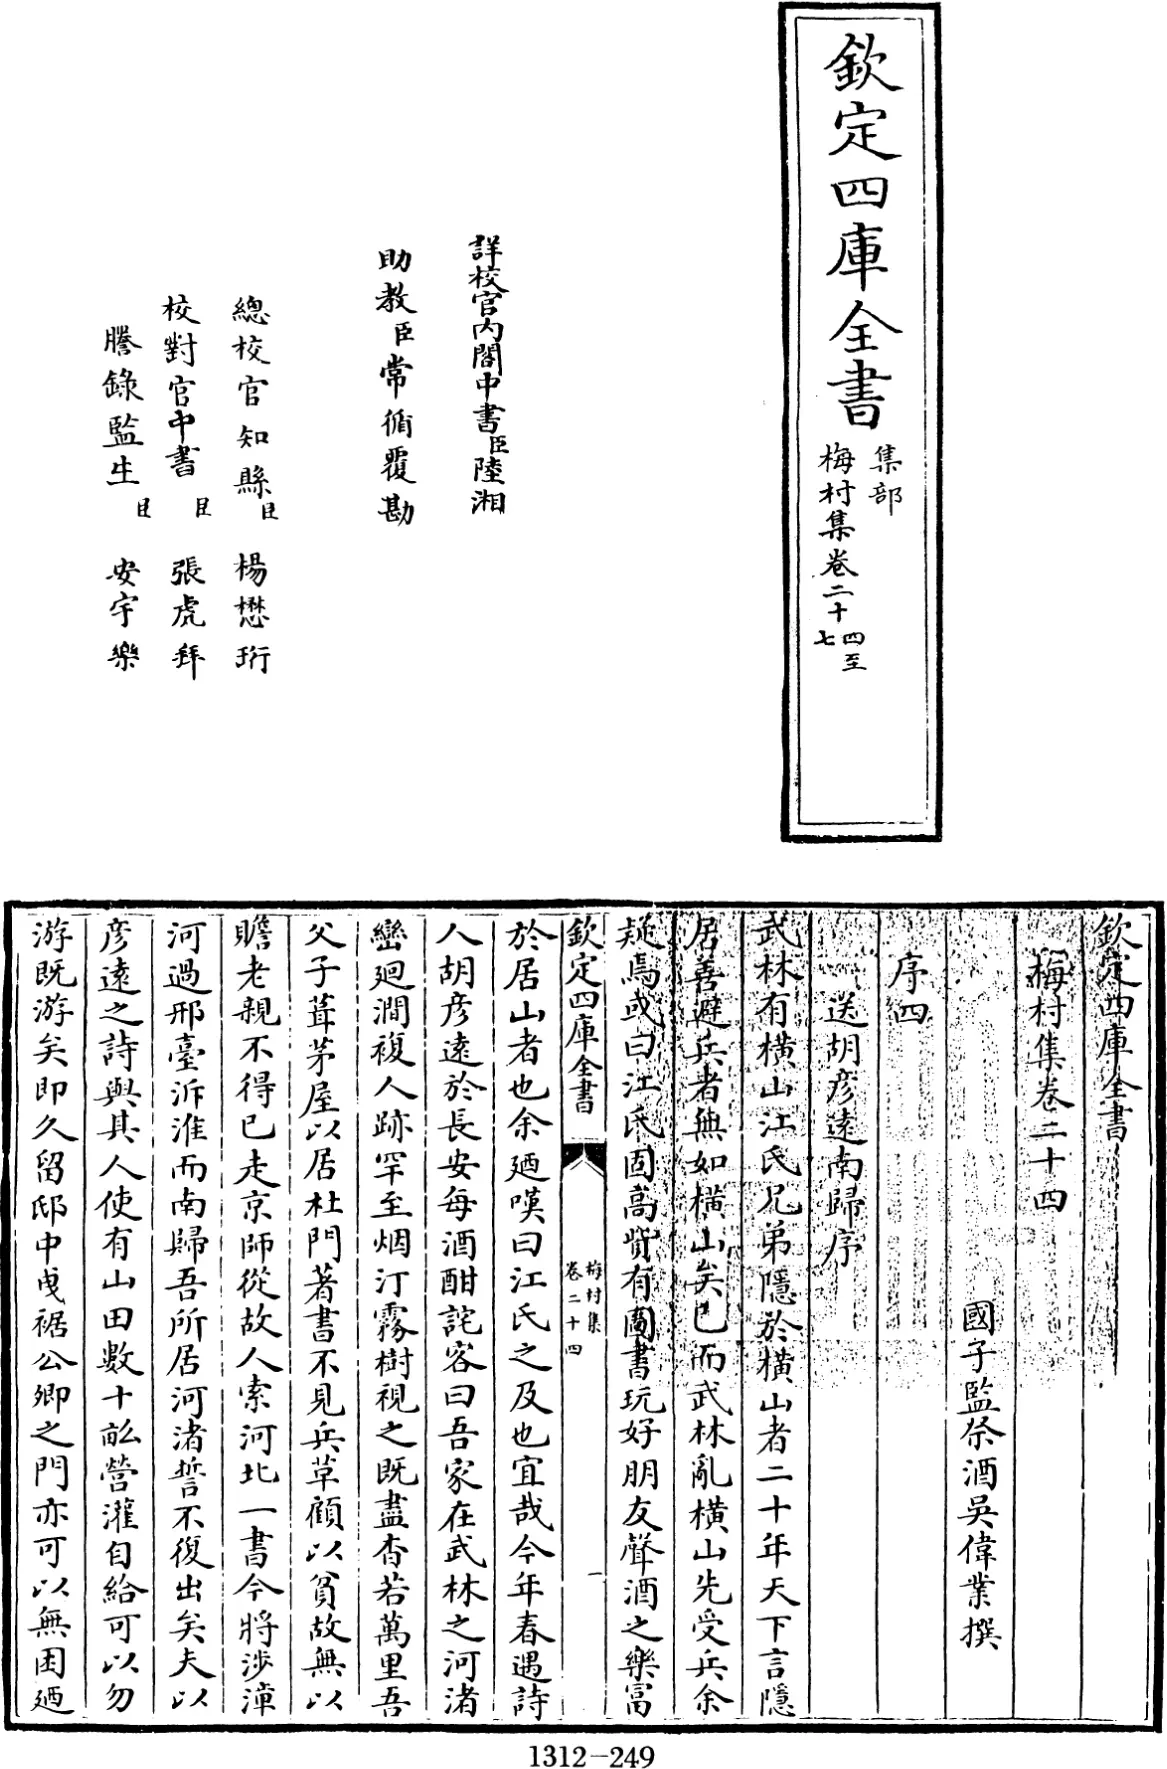 欽定四庫全書
集部
梅村集卷二十四至七
詳校官內閣中書臣陸湘
助教臣常循覆勘
總校官知縣臣楊懋珩
校對官中書臣張虎拜
謄錄監生臣安宇樂
欽定四庫全書
梅村集卷二十四
國子監祭酒吳偉業撰
序四
送胡彥遠南歸序
武林有橫山江氏兄弟隱於橫山者二十年天下言隱
居善避兵者無如橫山矣已而武林亂橫山先受兵余
疑焉或曰江氏固高貲有圖書玩好朋友聲酒之樂富
欽定四庫全書
梅村集
卷二十四
一
於居山者也余廼嘆曰江氏之及也宜哉今年春遇詩
人胡彥遠於長安每酒酣詫客曰吾家在武林之河渚
巒廻澗複人跡罕至烟汀霧樹視之既盡杳若萬里吾
父子葺茅屋以居杜門著書不見兵革顧以貧故無以
贍老親不得已走京師從故人索河北一書今將涉漳
河過邢臺泝淮而南歸吾所居河渚誓不復出矣夫以
彥遠之詩與其人使有山田數十畝營灌自給可以勿
游既游矣即久留邸中曳裾公卿之門亦可以無困廼
1312-249